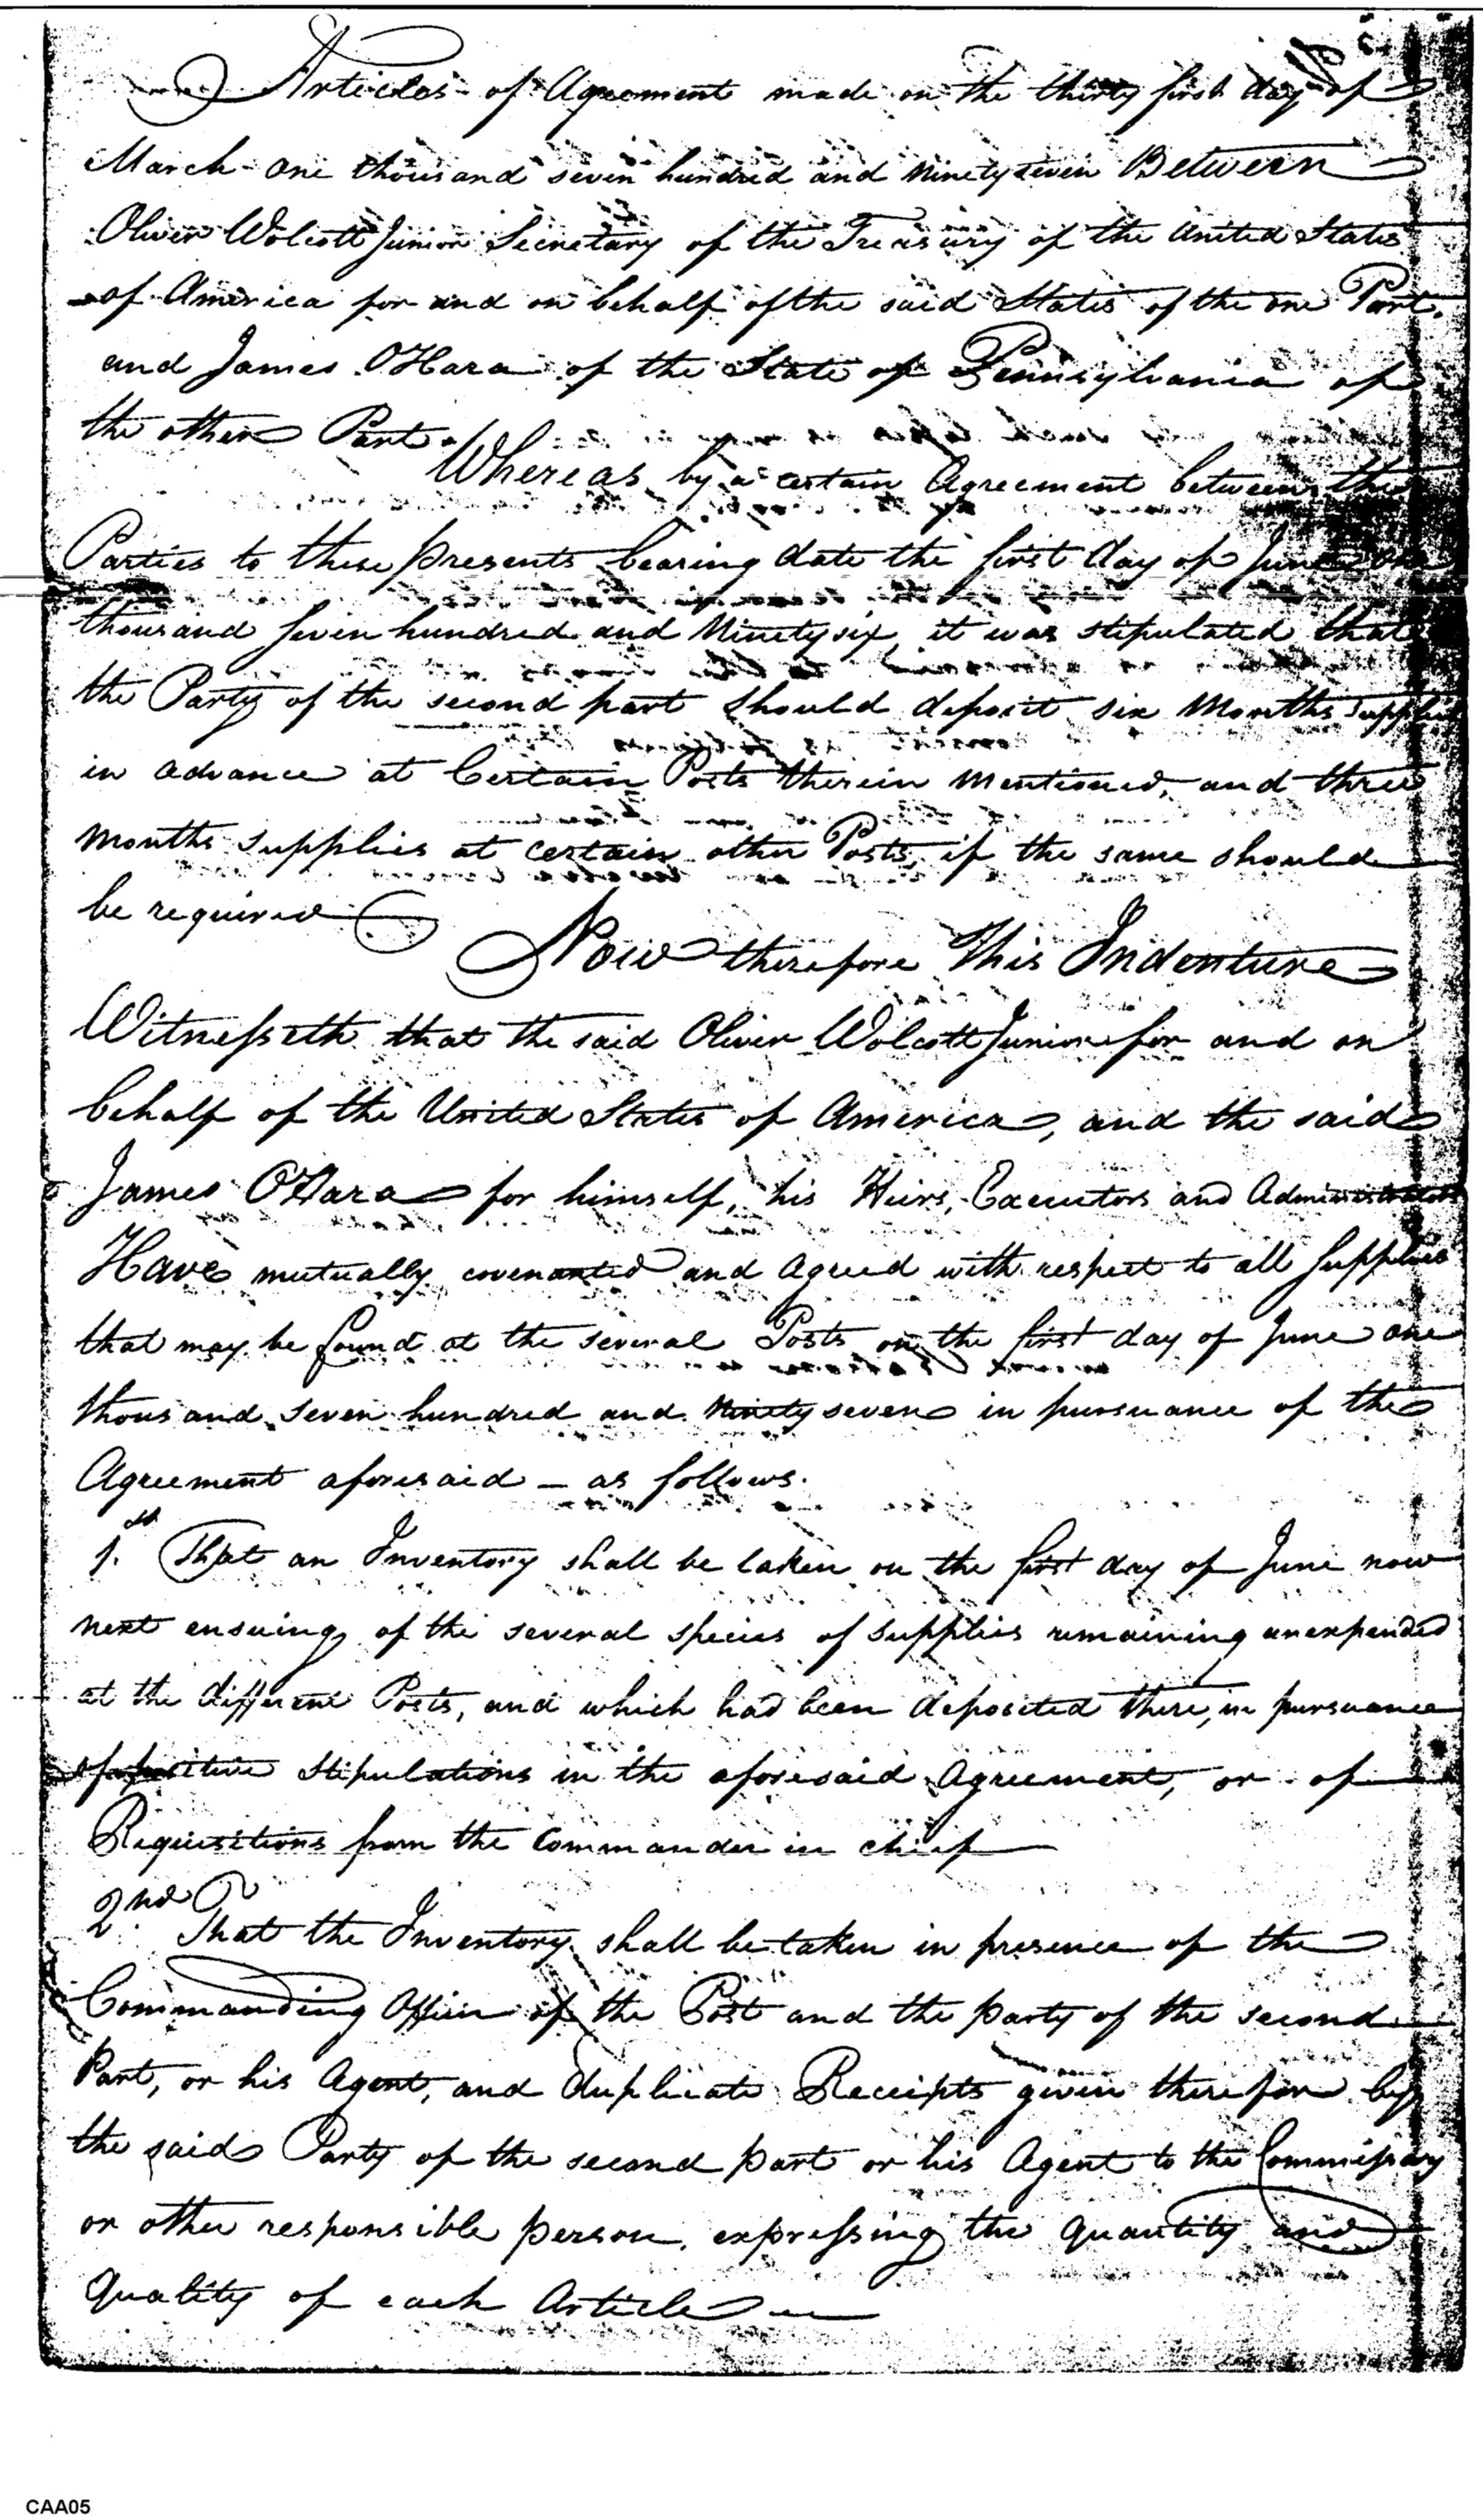 Articles of Agreement made on the thirty first day of
March one thousand seven hundred and Ninety seven Between
Oliver Wolcott Junior Secretary of the Treasury of the United States
of America for and on behalf of the said States of the one Part,
and James OHara of the State of Pennsylvania of
the other Part.
Whereas by a certain Agreement between the
Parties to these presents bearing date the first day of June one
thousand seven hundred and Ninety six, it was stipulated that
the Party of the second part should deposit six Months supplies
in advance at Certain Posts therein Mentioned, and three
months supplies at certain other Posts, if the same should
be required
Now therefore This Indenture
Witnesseth that the said Oliver Wolcott Junior for and on
behalf of the United States of America, and the said
James OHara for himself, his Heirs, Executors and Administrators
Have mutually covenanted and Agreed with respect to all Supplies
that may be found at the several Posts on the first day of June one
thousand seven hundred and Ninety seven in pursuance of the
Agreement aforesaid - as follows.
1.st That an Inventory shall be taken on the first day of June now
next ensuing of the several species of supplies remaining unexpended
at the different Posts, and which had been deposited there, in pursuance
of positive Stipulations in the aforesaid Agreement, or of
Requisitions from the Commander in chief
2nd That the Inventory shall be taken in presence of the
Commanding Officer of the Post and the party of the second
Part, or his Agent, and duplicate Receipts given therefor by
the said Party of the second part or his Agent to the Commissary
or other responsible person, expressing the Quantity and
Quality of each Article
CAA05